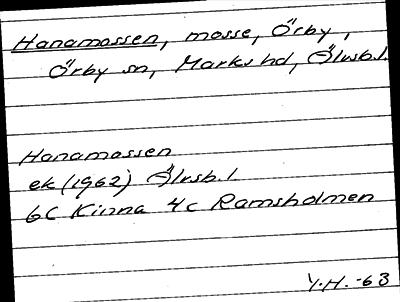 Hanamossen, mosse, Örby,
Örby sn, Marks hd, Älvsb.l.
Hanamossen
ek (1962) Älvsb.l
6C Kinna 4c Ramsholmen
Y.H. -63